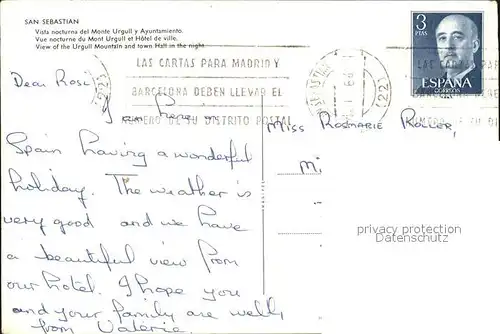 SAN SEBASTIAN
Vista nocturna del Monte Urgull y Ayuntamiento.
Vue nocturne du Mont Urgull et Hôtel de ville.
View of the Urgull Mountain and town Hall in the night.
3
PTAS
ESPAÑA
CORREOS
LAS CARTAS PARA MADRID Y
BARCELONA DEBEN LLEVAR EL
NUMERO DE SU DISTRITO POSTAL
Dear Rosi,
I am here in
Spain having a wonderful
holiday. The weather is
very good and we have
a beautiful view from
our hotel. I hope you
and your family are well,
from Valerie.
Miss Rosmarie Roller,
privacy protection
Datenschutz